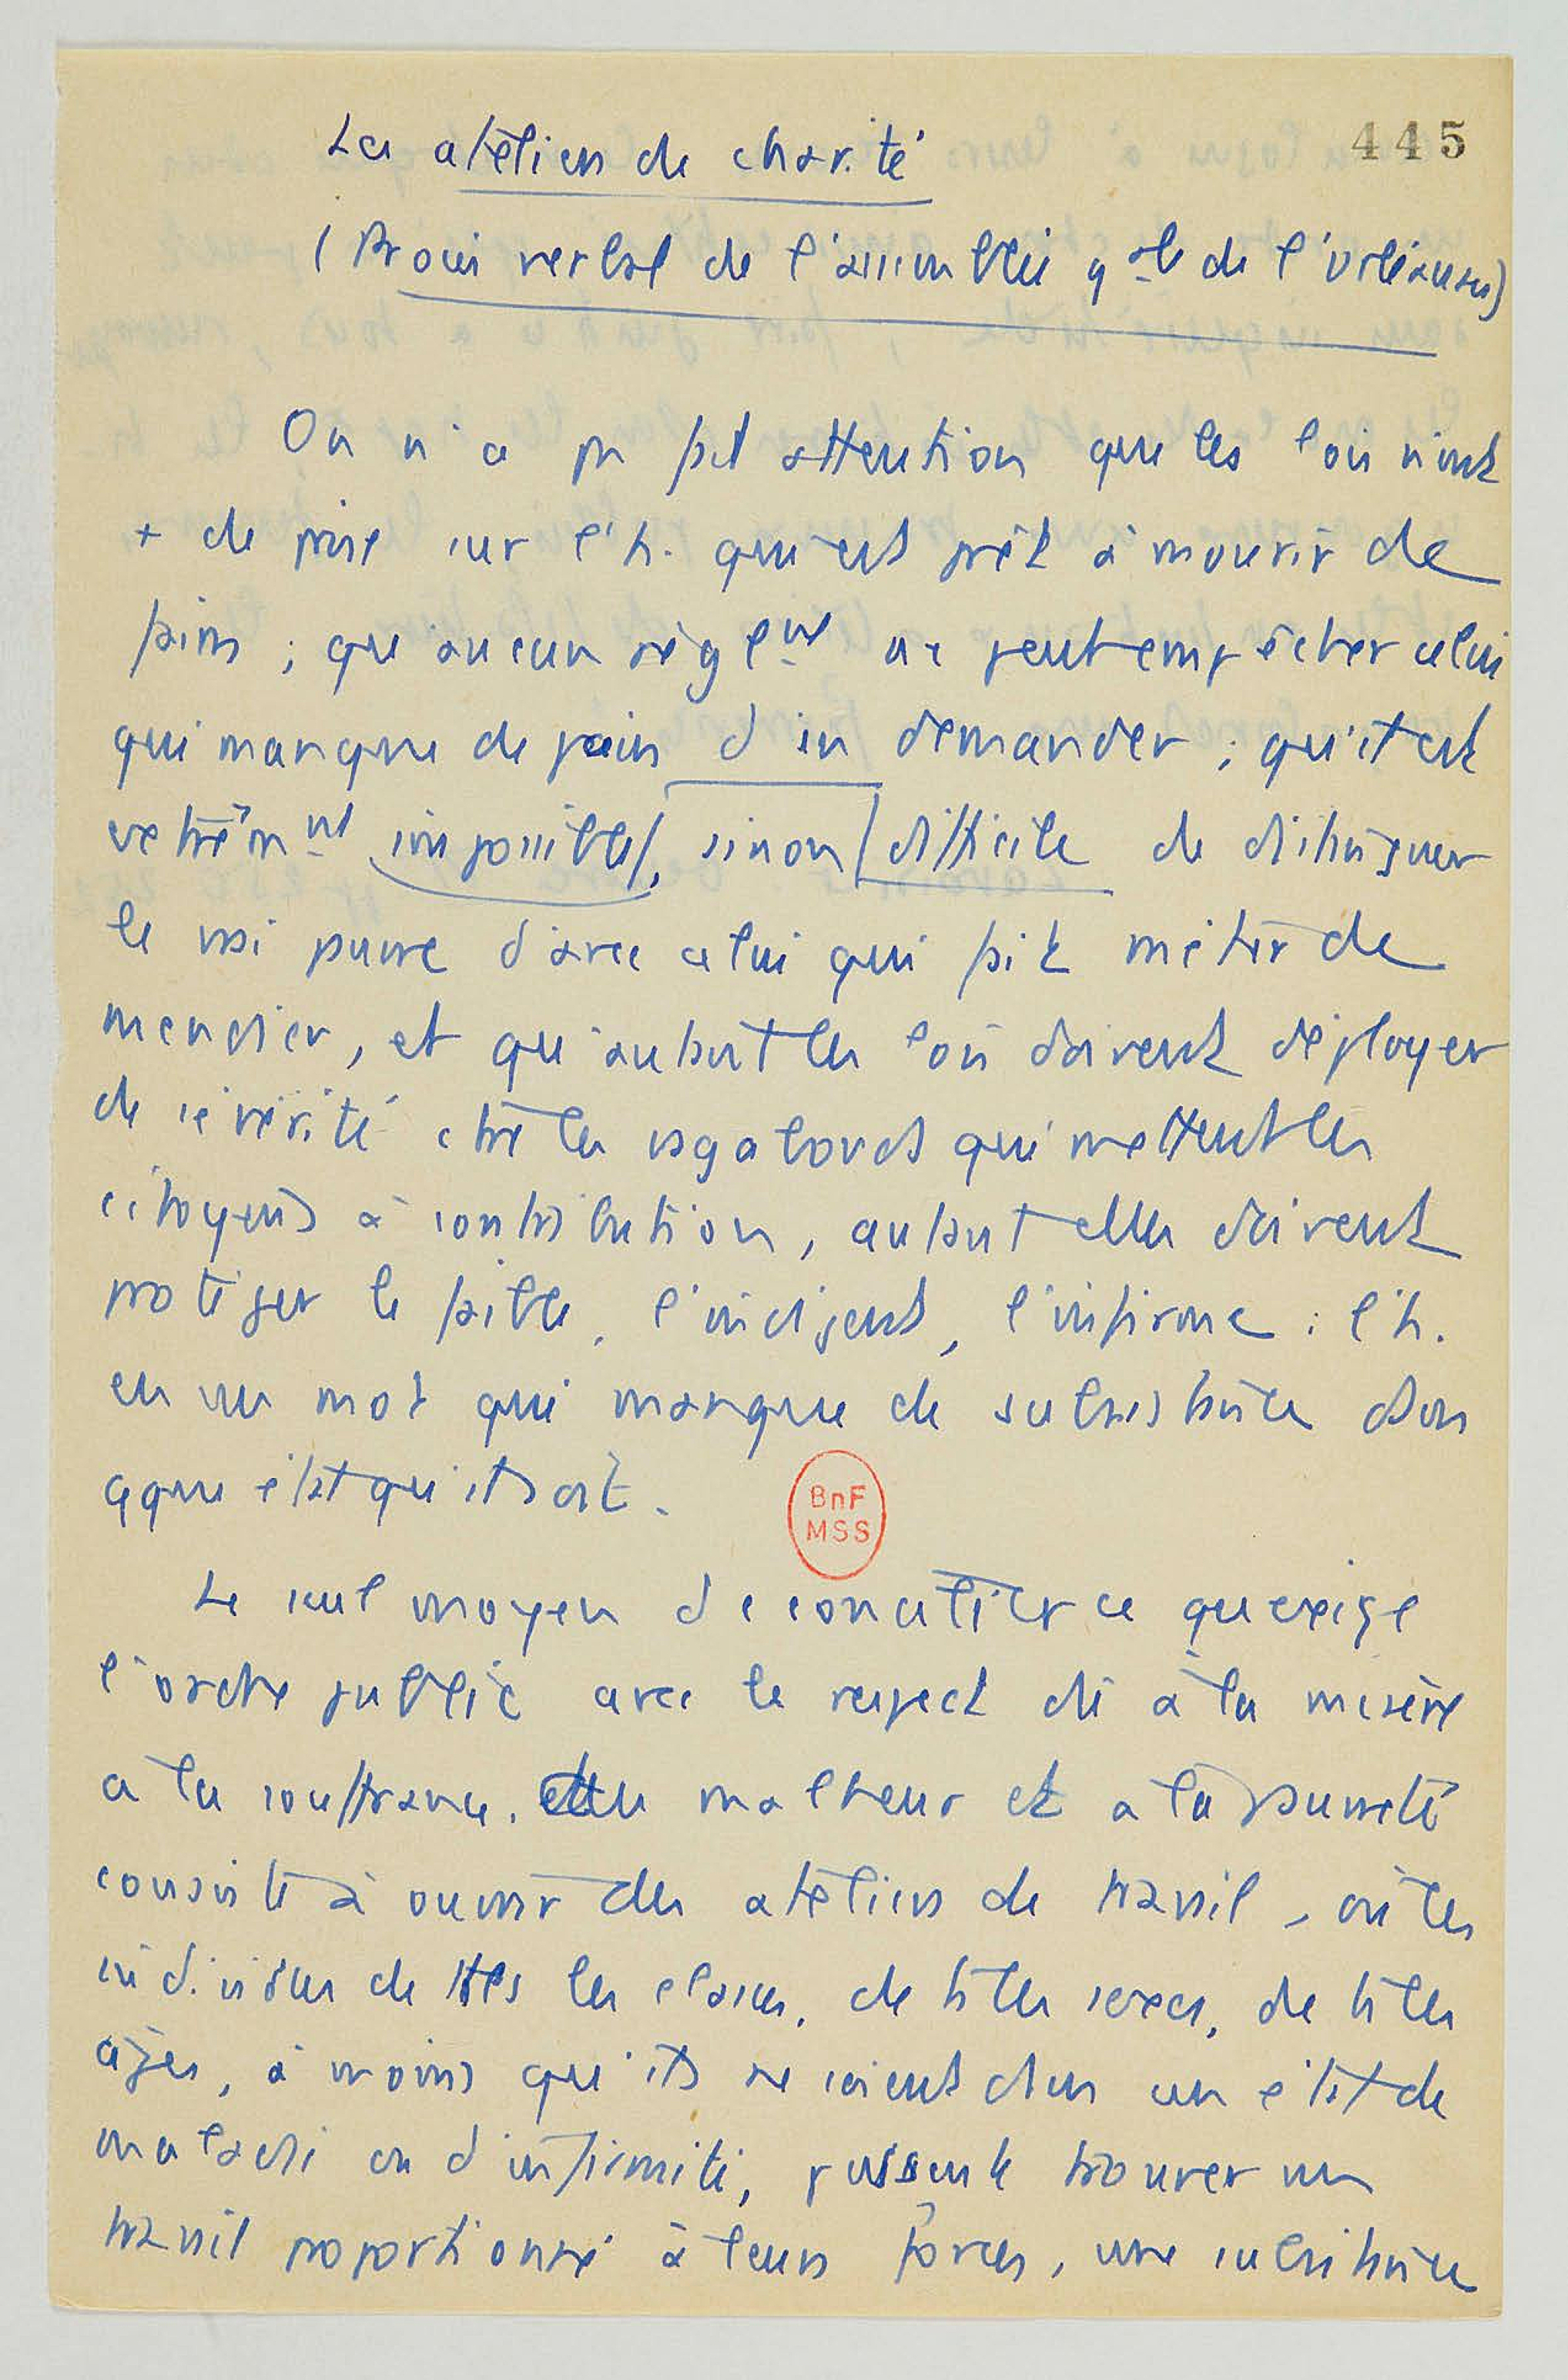 445
Les ateliers de charité
(Procès verbal de l'assemblée gale de l'orléanais)
On n'a pas fait attention que les lois n'ont
+ de prise sur l'h. qui est prêt à mourir de
faim ; que aucun règlent ne peut empêcher celui
qui manque de pain d'en demander ; qu'il est
extrêmnt impossible, sinon difficile de distinguer
le vrai pauvre d'avec celui qui fait métier de
mendier, et qu'autant les lois doivent déployer
de sévérité ctre les vagabonds qui mettent les
citoyens à contribution, autant elles doivent
protéger le faible, l'indigent, l'infirme ; l'h.
en un mot qui manque de subsistance dans
qque état qu'il soit.
BnF
MSS
Le seul moyen de concilier ce qu'exige
l'ordre public avec le respect dû à la misère
a la souffrance, au malheur et a la pauvreté
consiste à ouvrir des ateliers de travail, où les
individus de ttes les classes, de ts les sexes, de ts les
âges, à moins qu'ils ne soient dans un état de
maladie ou d'infirmité, puissent trouver un
travail proportionné à leurs forces, une subsistance